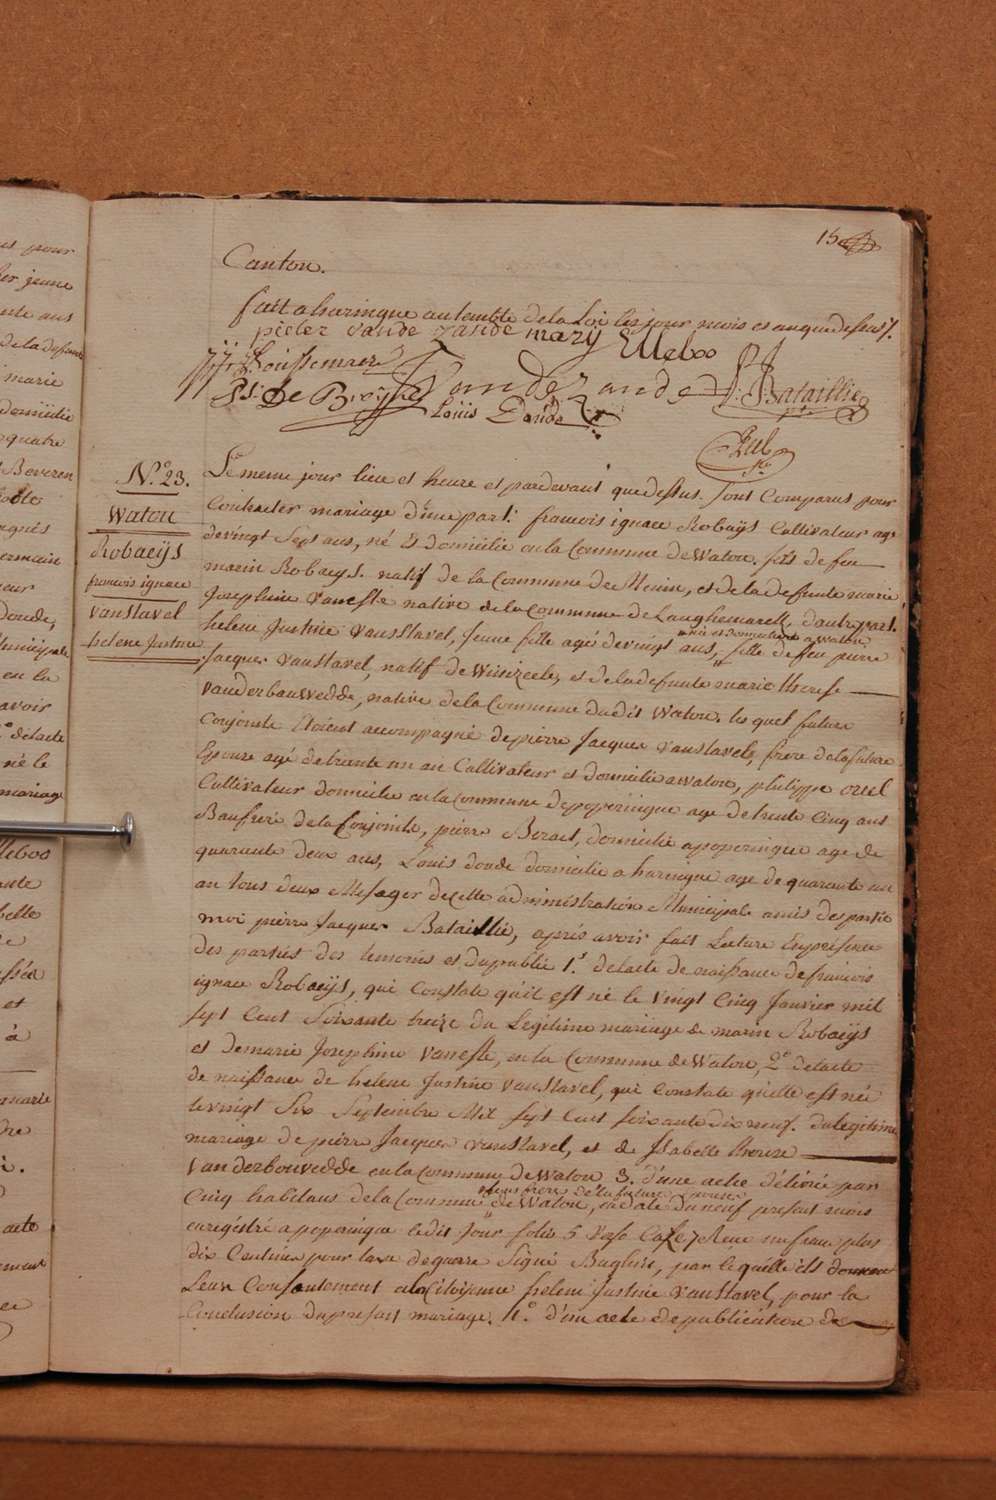 15
Canton.
fait a haringue au temple de la Loi les jour mois et an que dessus /.
pieter vande zande mary Ellebo
J Boussemaere Vandezande P: J: Bataillie
Ps: De Bruyne Louis Doude
N.° 23.
Watou
Robaeÿs
francois ignace
vanstavel
helene Justine
Le meme jour lieu et heure et pardevant que dessus. Sont Comparus pour
Contracter mariage d'une part: francois ignace Robaÿs Cultivateur age
de vingt Sept ans, né Et domicilie en la Commune de Watou. fils de feu
marin Robaeys. natif de la Commune de Menin, et de la defunte marie
Josephine vaneste native de la Commune de Langhemarck, d'autre part.
helene Justine Vanstavel, Jeune fille agé de vingt ans, née et domiciliée a watou fille de feu pierre
Jacques vanstavel, natif de Winizeele, et de la defunte marie therese
vanderbauwedde, native de la Commune du dit Watou. les quel future
Conjointe Etoient accompagné de pierre Jacques vanstavel, frere de la future
Epouse agé de trante un an Cultivateur et domicilie a watou, philippe
Cultivateur domicilie en la Commune de poperingue age de trente Cinq ans
Baufrere de la Conjointe, pierre domicilie a poperingue age de
quarante deux ans, Louis doude domicilie a haringue age de quarante un
an tous deux Messager de cette administration Municipale amis des partie
moi pierre Jacques Bataillie, aprés avoir fait Lecture En presence
des partiés des temoins et du publié 1.° de lacte de naissance de francois
ignace Robaeÿs, qui Constate quil est né le vingt Cinq Janvier mil
sept Cent Soixante treize du Legitime mariage de marin Robaeÿs
et de marie Josephine vaneste, en la Commune de Watou, 2.° de lacte
de naissance de helene Justine vanstavel, qui Constate quelle est née
le vingt Six Septembre Mil sept Cent soixante dix neuf. du legitime
mariage de pierre Jacques vanstavel, et de Isabelle therese
Vanderbouwedde en la commune de Watou 3. d'une acte délivré par
Cinq habitans de la Commune de Watou, en date du neuf present mois
enregistré a poperingue ledit Jour folio 5 verso Case 7 Reçu un franc plus
dix Centimes pour taxe de guerre Signé Baghin, par lequelle ils donnent
Leur Consentement a la Citoyenne helene Justine Vanstavel, pour la
Conclusion du present mariage. 4.° d'un acte de publication de